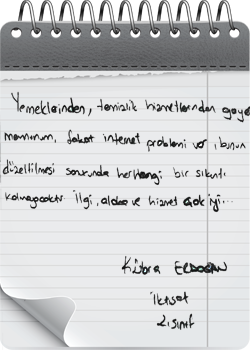 Yemeklerinden, temizlik hizmetlerinden gayet
memnunum, fakat internet problemi var, bunun
düzeltilmesi sonucunda herhangi bir sıkıntı
kalmayacaktır. İlgi, alaka ve hizmet çok iyi...
Kübra ERDOĞAN
İktisat
2. sınıf